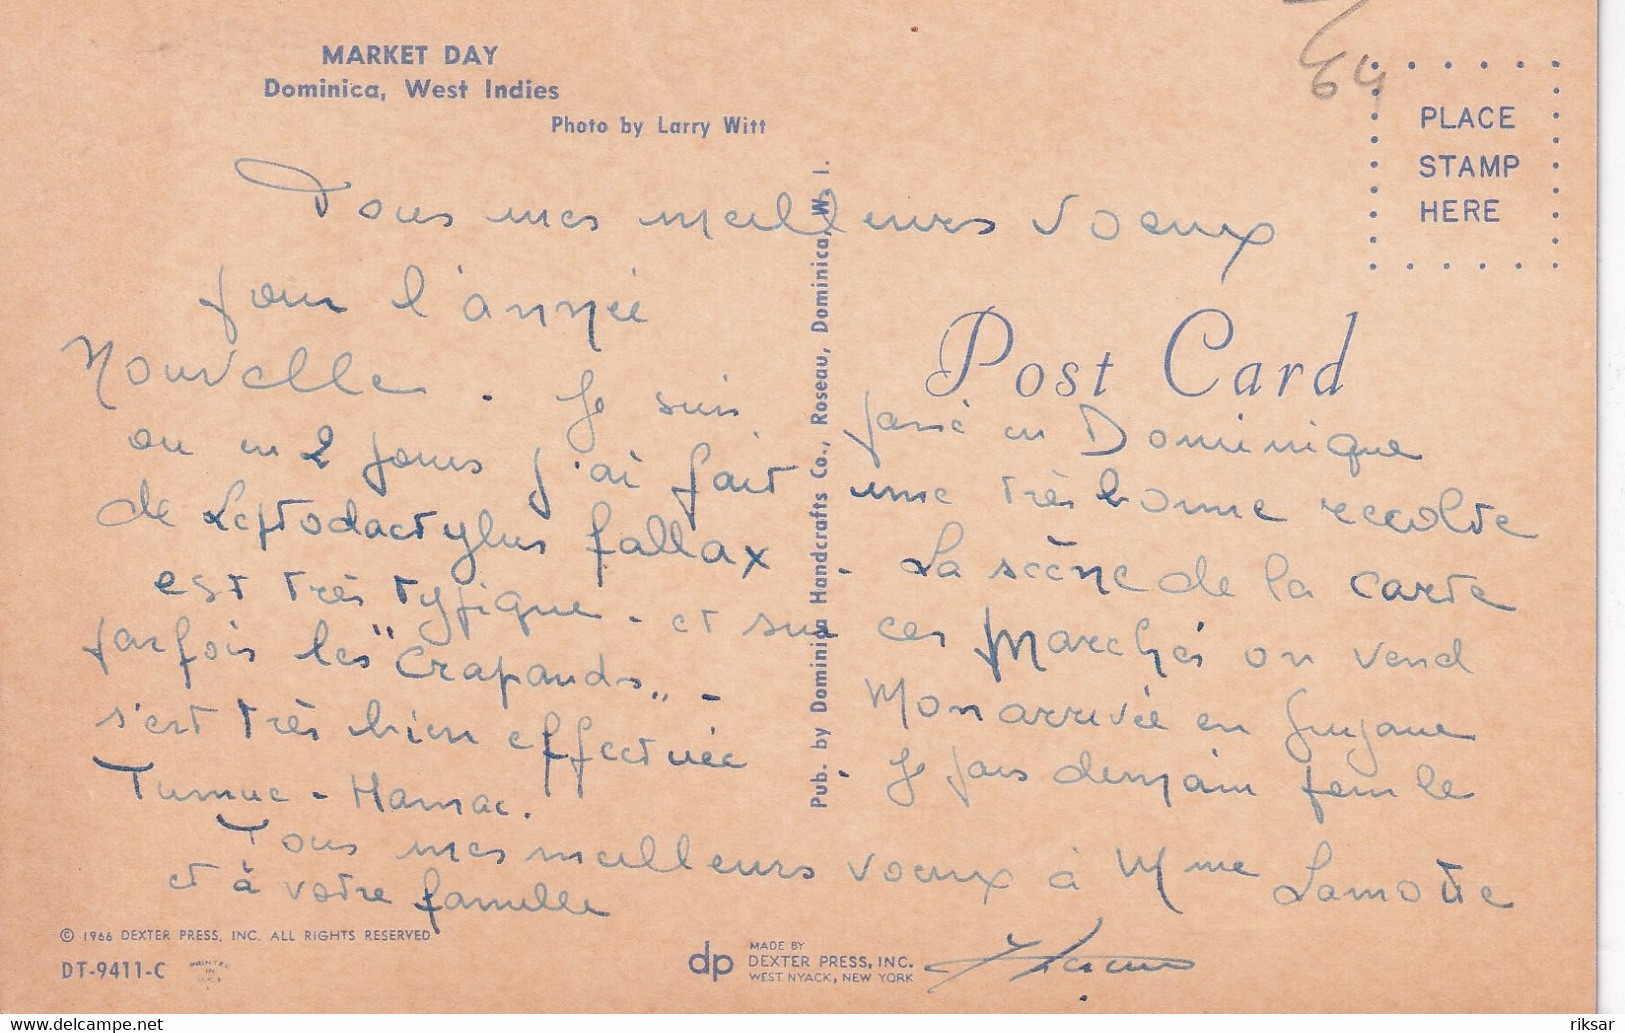 MARKET DAY
Dominica, West Indies
Photo by Larry Witt
64
PLACE
STAMP
HERE
Post Card
Pub. by Dominica Handcrafts Co., Roseau, Dominica, W. I.
Tous mes meilleurs voeux
pour l'année
Nouvelle. Je suis passé en Dominique
ou en 2 jours j'ai fait une très bonne recolte
de Leptodactylus fallax. La scène de la carte
est très typique. et sur ces marchés on vend
parfois les "Crapauds". Mon arrivée en Guyane
s'est très bien effectuée. Je pars demain pour le
Tumuc-Humac.
Tous mes meilleurs voeux à Mme Lamotte
et à votre famille
© 1966 DEXTER PRESS, INC. ALL RIGHTS RESERVED
DT-9411-C
PRINTED
IN
U.S.A.
dp
MADE BY
DEXTER PRESS, INC.
WEST NYACK, NEW YORK
riksar